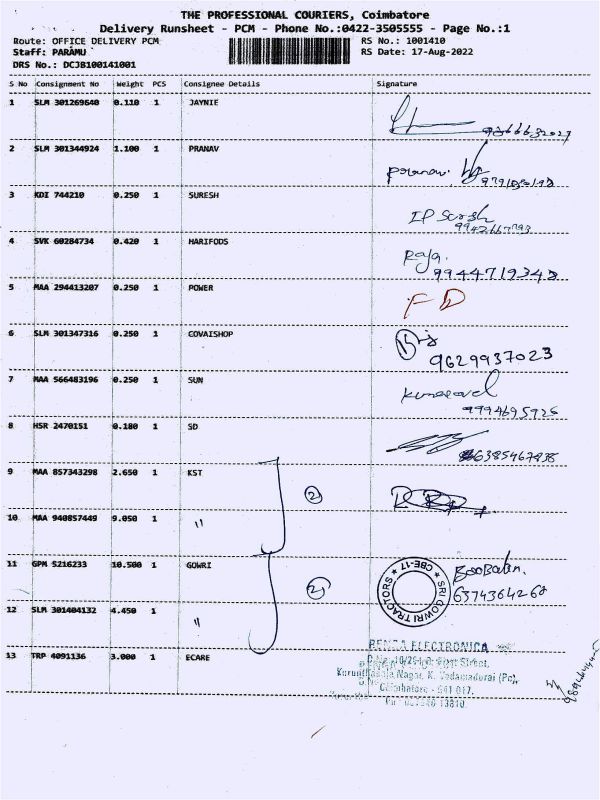 THE PROFESSIONAL COURIERS, Coimbatore
Delivery Runsheet - PCM - Phone No.:0422-3505555 - Page No.:1
Route: OFFICE DELIVERY PCM
RS No.: 1001410
Staff: PARAMU
RS Date: 17-Aug-2022
DRS No.: DCJB100141001
S No Consignment No Weight PCS Consignee Details Signature
1 SLM 301269640 0.110 1 JAYNIE
2 SLM 301344924 1.100 1 PRANAV
Pranav.
3 KDI 744210 0.250 1 SURESH
IP Suresh
4 SVK 60284734 0.420 1 HARIFODS
Raja.
9944719348
5 MAA 294413207 0.250 1 POWER
F D
6 SLM 301347316 0.250 1 COVAISHOP
9629937023
7 MAA 566483196 0.250 1 SUN
9994695925
8 HSR 2470151 0.180 1 SD
6385467838
9 MAA 857343298 2.650 1 KST
②
10 MAA 940857449 9.050 1 "
11 GPM 5216233 10.500 1 GOWRI
②
SRI GOWRI TRACTORS
CBE-17
6374364268
12 SLM 301404132 4.450 1 "
13 TRP 4091136 3.000 1 ECARE
ELECTRONICA
Street,
Nagar, K. Vadamadurai (Po),
Coimbatore - 641 017.